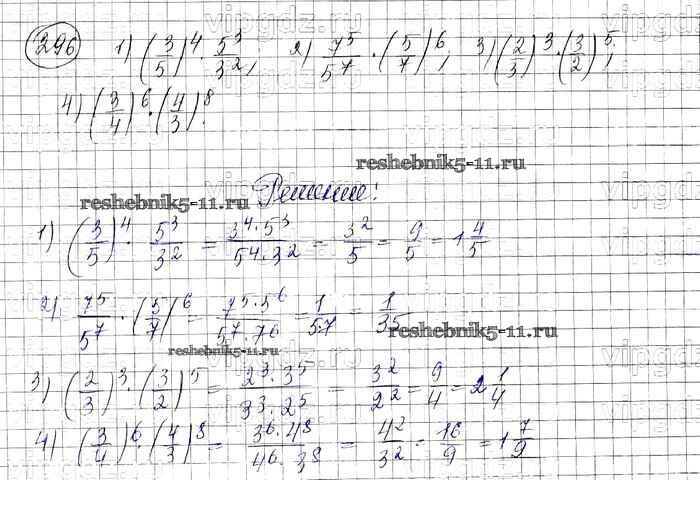 296 1) (3/5)^4 · 5^3/3^2, 2) 7^5/5^7 · (5/7)^6, 3) (2/3)^3 · (3/2)^5,
4) (3/4)^6 · (4/3)^8.
reshebnik5-11.ru
Решение:
reshebnik5-11.ru
1) (3/5)^4 · 5^3/3^2 = 3^4·5^3/5^4·3^2 = 3^2/5 = 9/5 = 1 4/5
2) 7^5/5^7 · (5/7)^6 = 7^5·5^6/5^7·7^6 = 1/5·7 = 1/35
reshebnik5-11.ru
reshebnik5-11.ru
3) (2/3)^3 · (3/2)^5 = 2^3·3^5/3^3·2^5 = 3^2/2^2 = 9/4 = 2 1/4
4) (3/4)^6 · (4/3)^8 = 3^6·4^8/4^6·3^8 = 4^2/3^2 = 16/9 = 1 7/9